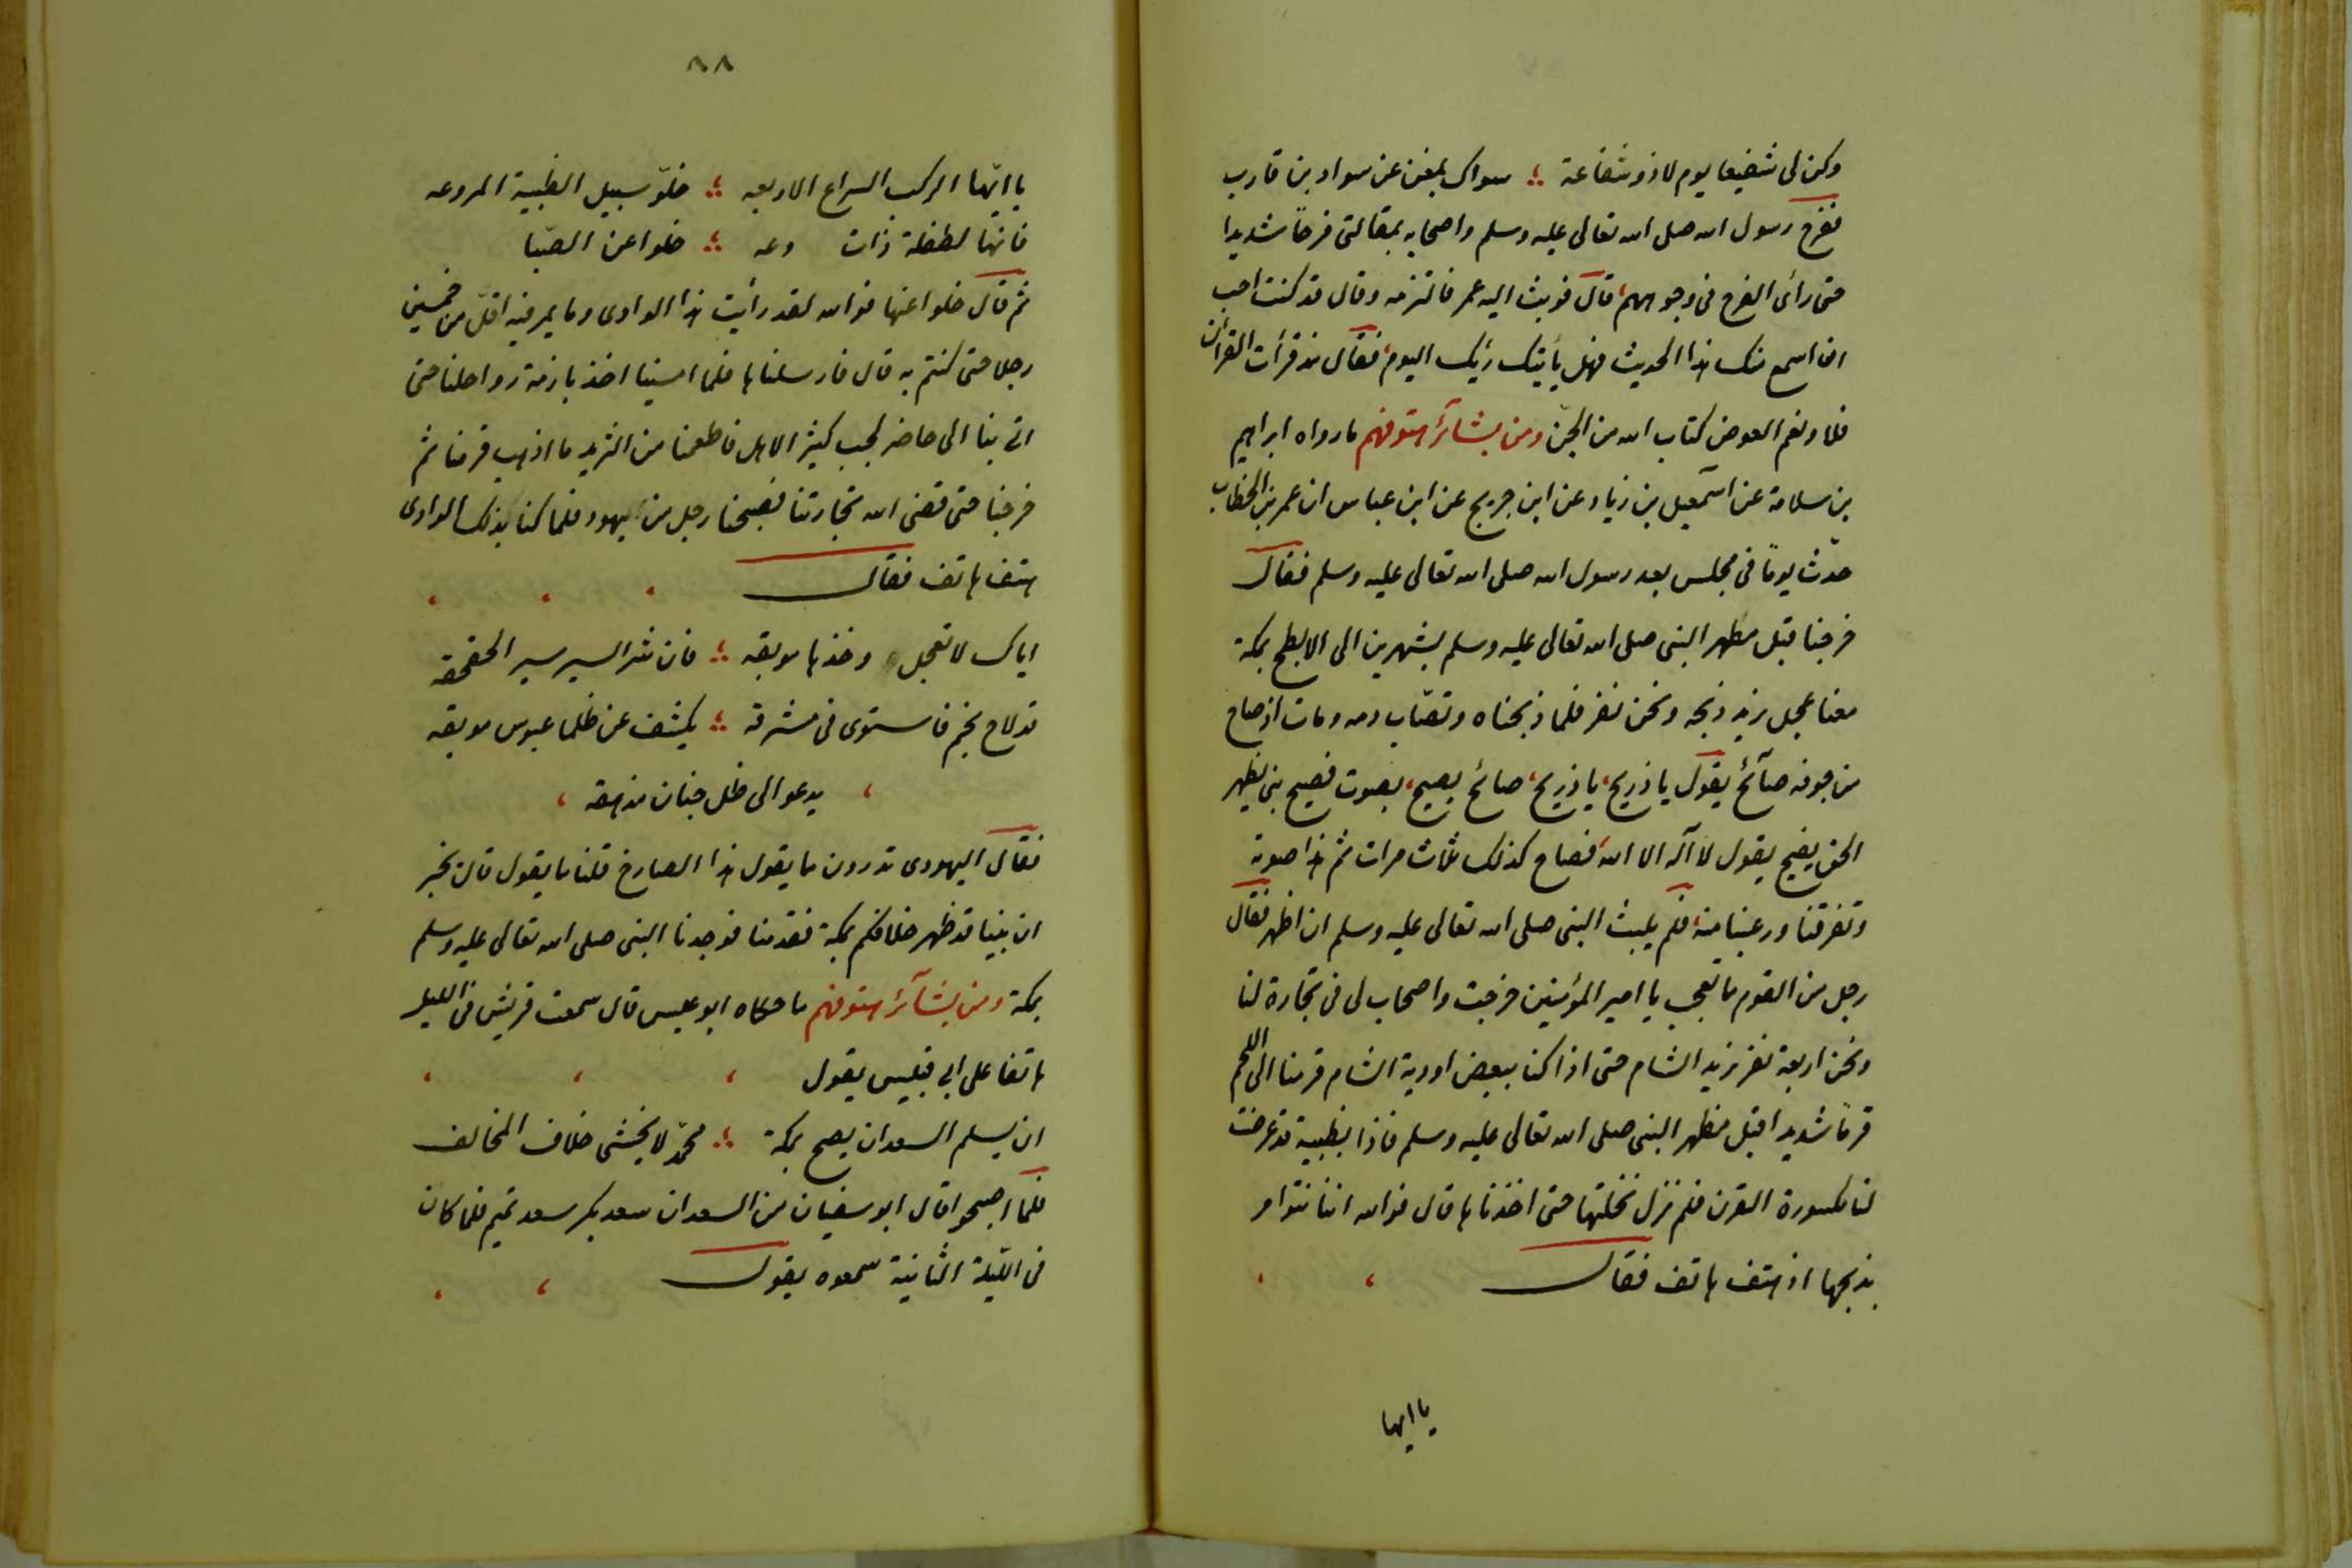 وكن لى شفيعا يوم لا ذو شفاعة ؛ سواك بمغن عن سواد بن قارب
ففرح رسول الله صلى الله تعالى عليه وسلم واصحابه بمقالتى فرحاً شديدا
حتى رأى الفرح فى وجوههم، قال فوثب اليه عمر فالتزمه وقال قد كنت احب
ان اسمع منك هذا الحديث فهل يأتيك رئيك اليوم، فقال منذ قرأت القرآن
فلا ونعم العوض كتاب الله من الجنّ ومن بشآئر هتوفهم ما رواه ابراهيم
بن سلامة عن اسمعيل بن زياد عن ابن جريج عن ابن عباس ان عمر بن الخطاب
حدّث يوماً فى مجلس بعد رسول الله صلى الله تعالى عليه وسلم فقال
خرجنا قبل مظهر النبى صلى الله تعالى عليه وسلم بشهرين الى الابطح بمكة
معنا عجل نريد ذبحه ونحن نفر فلما ذبحناه وتصّاب دمه ومات اذ صاح
من جوفه صآئح يقول يا ذريح، يا ذريح، صائح يصيح، بصوت فصيح نبى يظهر
الحق يفيح يقول لا آله الا الله، فصاح كذلك ثلاث مرات ثم هدا صوته
وتفرقنا ورعبنا منه، فلم يلبث النبى صلى الله تعالى عليه وسلم ان اظهر فقال
رجل من القوم ما تعجب يا امير المؤمنين خرجت واصحاب لى فى تجارة لنا
ونحن اربعة نفر نريد الشام حتى اذا كنا ببعض اودية الشام قرمنا الى اللحم
قرماً شديدا قبل مظهر النبى صلى الله تعالى عليه وسلم فاذا بظبية قد عرضت
لنا مكسورة القرن فلم نزل نختلها حتى اخذناها قال فوالله اننا نتوامر
بذبحها اذ هتف هاتف فقال
يا ايها
٨٨
يا ايّها الركب السراع الاربعه ؛ خلوّ سبيل الظبية المروعه
فانها لطفلة ذات دعه ؛ خلوا عن الصّبا
ثم قال خلوا عنها فوالله لقد رأيت هذا الوادى وما يمر فيه اقلّ من خمسين
رجلا حتى كنتم به قال فارسلناها فلما امسينا اخذ بازمة رواحلنا حتى
اتى بنا الى حاضر لجب كثير الاهل فاطعمنا من الثريد ما اذهب قرمنا ثم
خرجنا حتى قضى الله تجارتنا فصبحنا رجل من يهود فلما كنا بذلك الوادى
هتف هاتف فقال
اياك لا تعجل وخذها موبقه ؛ فان شر السير سير الحقحقه
قد لاح نجم فاستوى فى مشرقه ؛ يكشف عن ظلما عبوس موبقه
، يدعو الى ظل جنان مذهقه ،
فقال اليهودى تدرون ما يقول هذا الصارخ قلنا ما يقول قال يخبر
ان نبينا قد ظهر خلافكم بمكة فقدمنا فوجدنا النبى صلى الله تعالى عليه وسلم
بمكة ومن بشآئر هتوفهم ما حكاه ابو عيسى قال سمعت قريش فى الليل
هاتفا على ابى قبيس يقول
ان يسلم السعدان يصبح بمكة ؛ محمّد لا يخشى خلاف المخالف
فلمّا اصبحوا قال ابو سفيان من السعدان سعد بكر سعد تميم فلما كان
فى الليلة الثانية سمعوه يقول